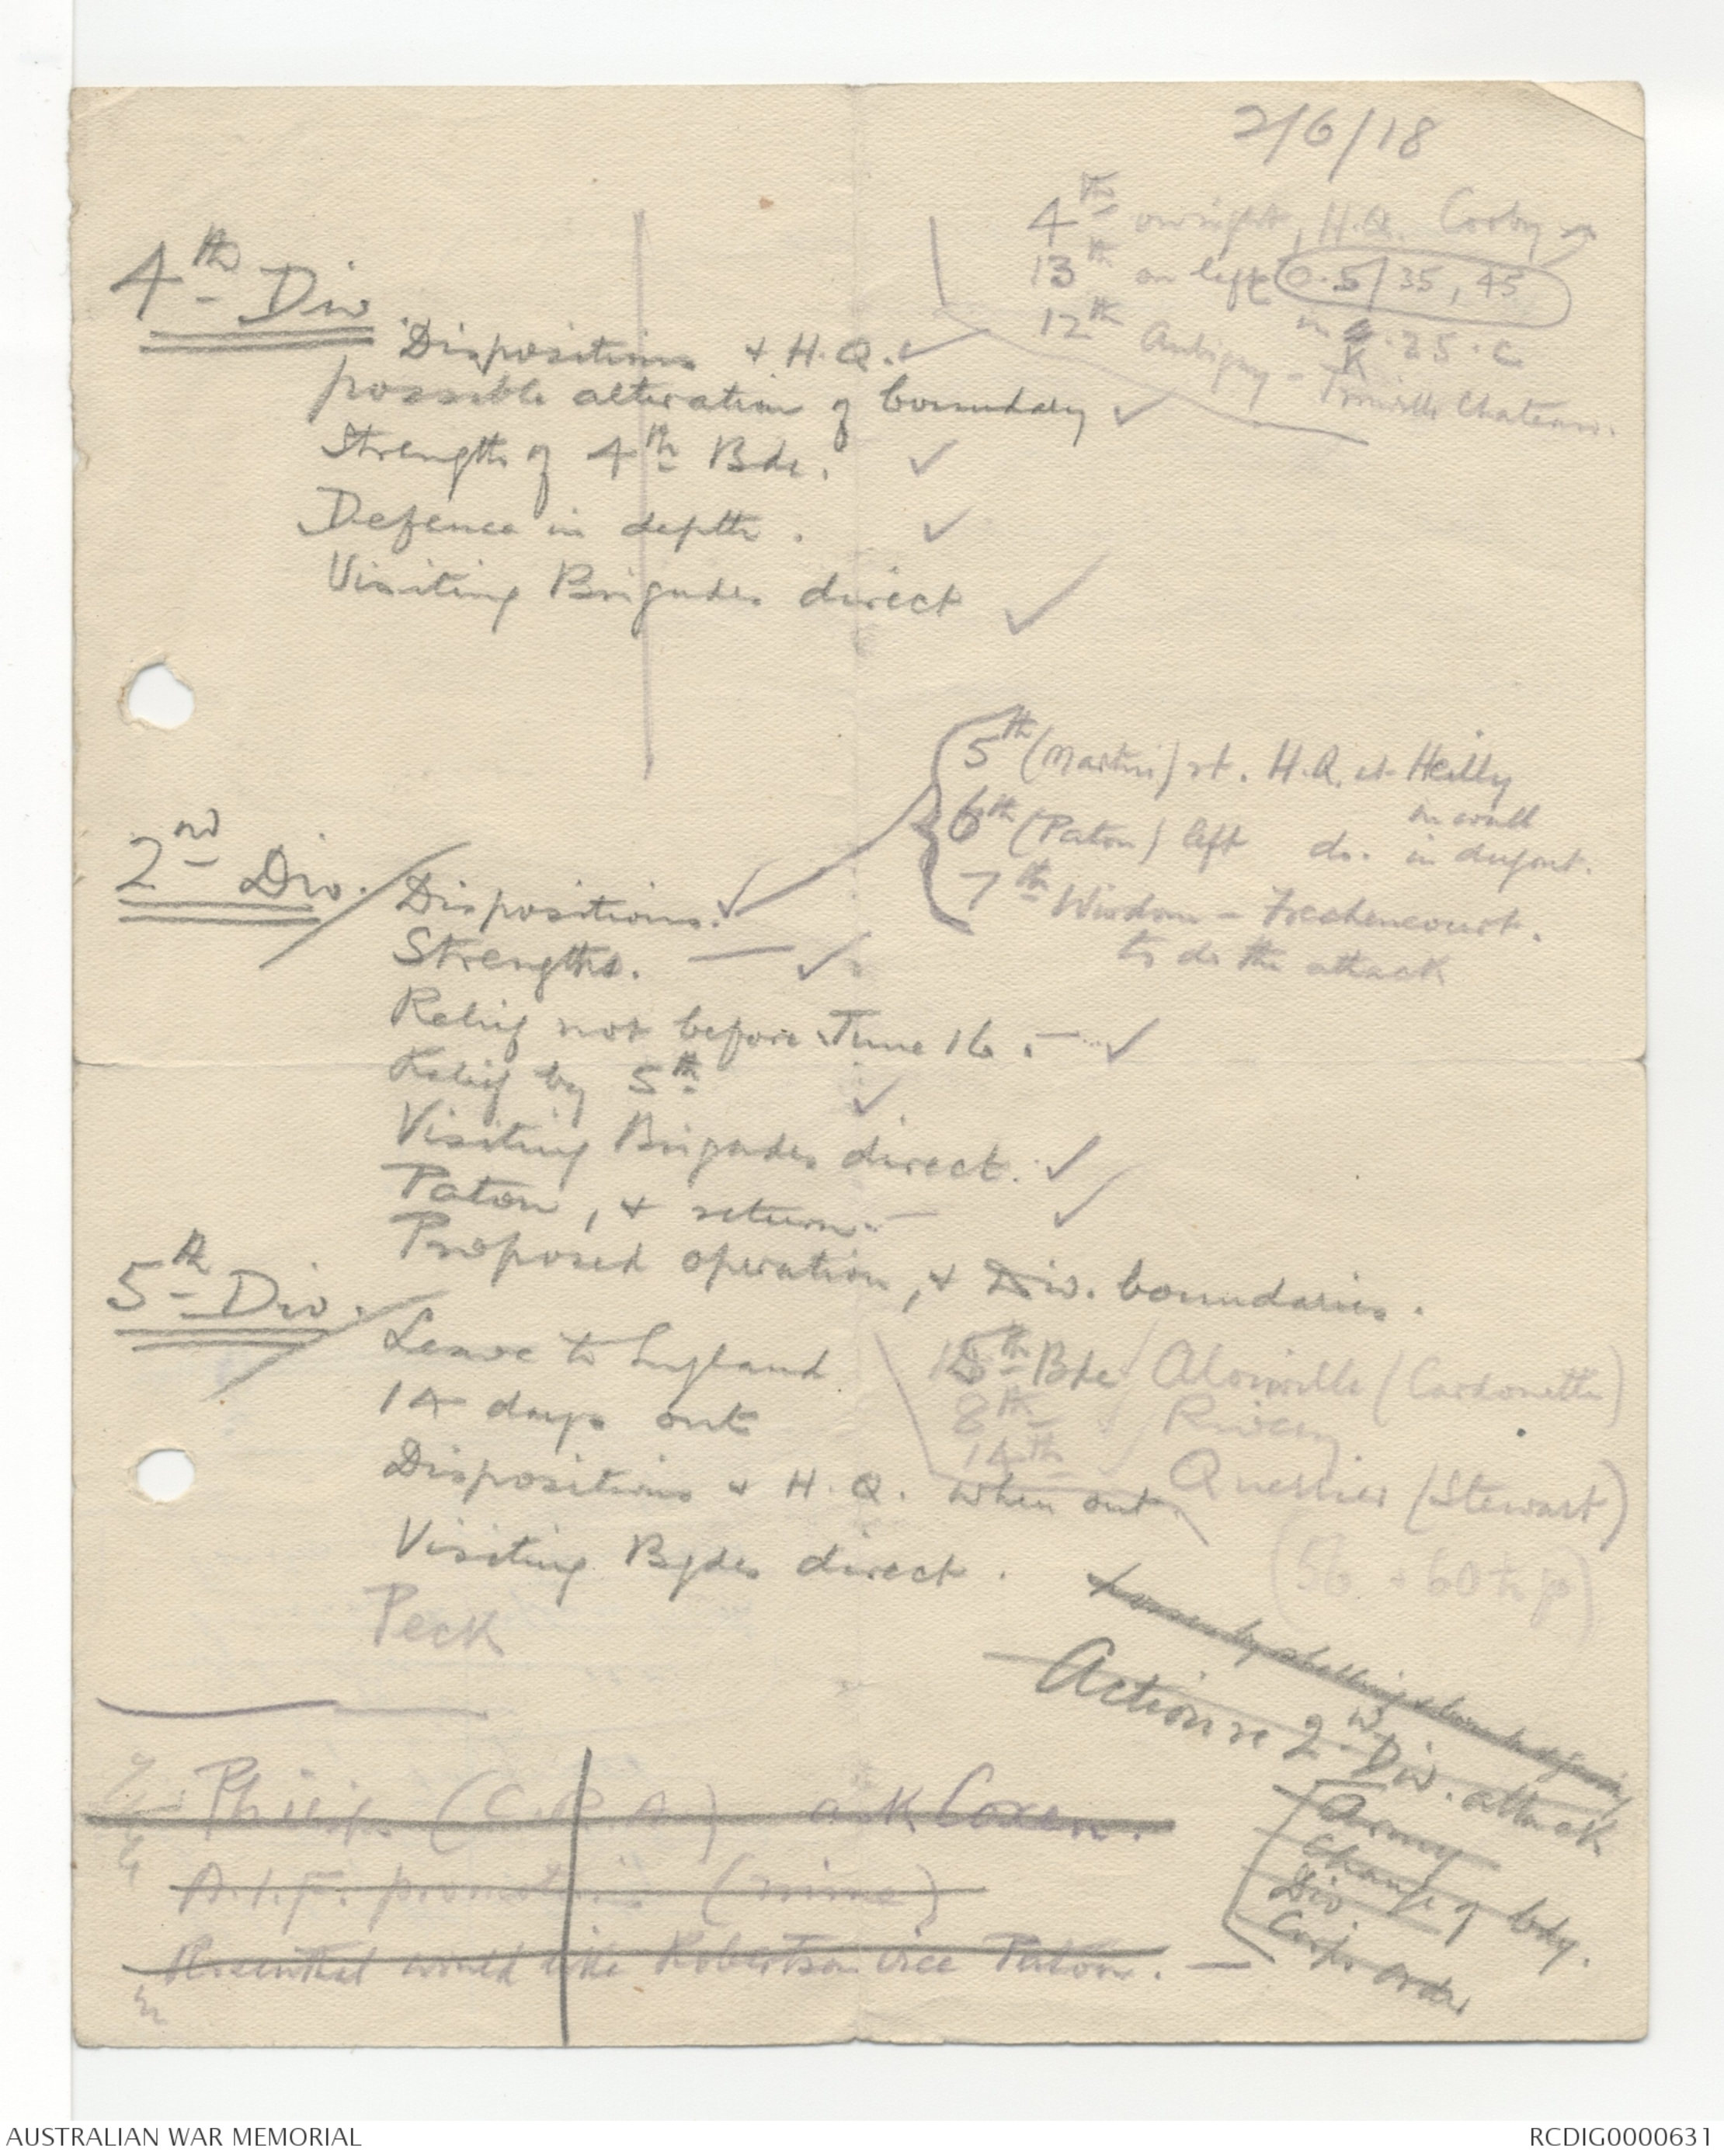 2/6/18
4th on right, H.Q. Corby
13th on left 0.5/35, 45
in K.25.c
12th Aubigny - Chateau.
4th Div
Dispositions + H.Q. ✓
possible alteration of boundary ✓
Strength of 4th Bde. ✓
Defence in depth. ✓
Visiting Brigades direct ✓
5th (Martin) rt. H.Q. at Heilly
in wood
6th (Paton) left do. in dugout.
7th Wisdom - Frechencourt.
to do the attack
2nd Div.
Dispositions. ✓
Strengths. — ✓
Relief not before June 16. - ✓
Relief by 5th ✓
Visiting Brigades direct. ✓
Paton, + return - ✓
Proposed operation, + Div. boundaries.
5th Div.
Leave to England
14 days out
Dispositions + H.Q. when out.
Visiting Bgdes direct.
Peck
15th Bde / (Cardonette)
8th / Rivery
14th Querrieu (Stewart)
(56 - 60 to )
Losses by shelling &
Action re 2nd Div. attack
Army
Change of bdy.
Div
Corps order
(C.R.A) ask Coxen.
A.I.F. promotions (mine)
Rosenthal would like Robertson vice Paton. —
AUSTRALIAN WAR MEMORIAL
RCDIG0000631